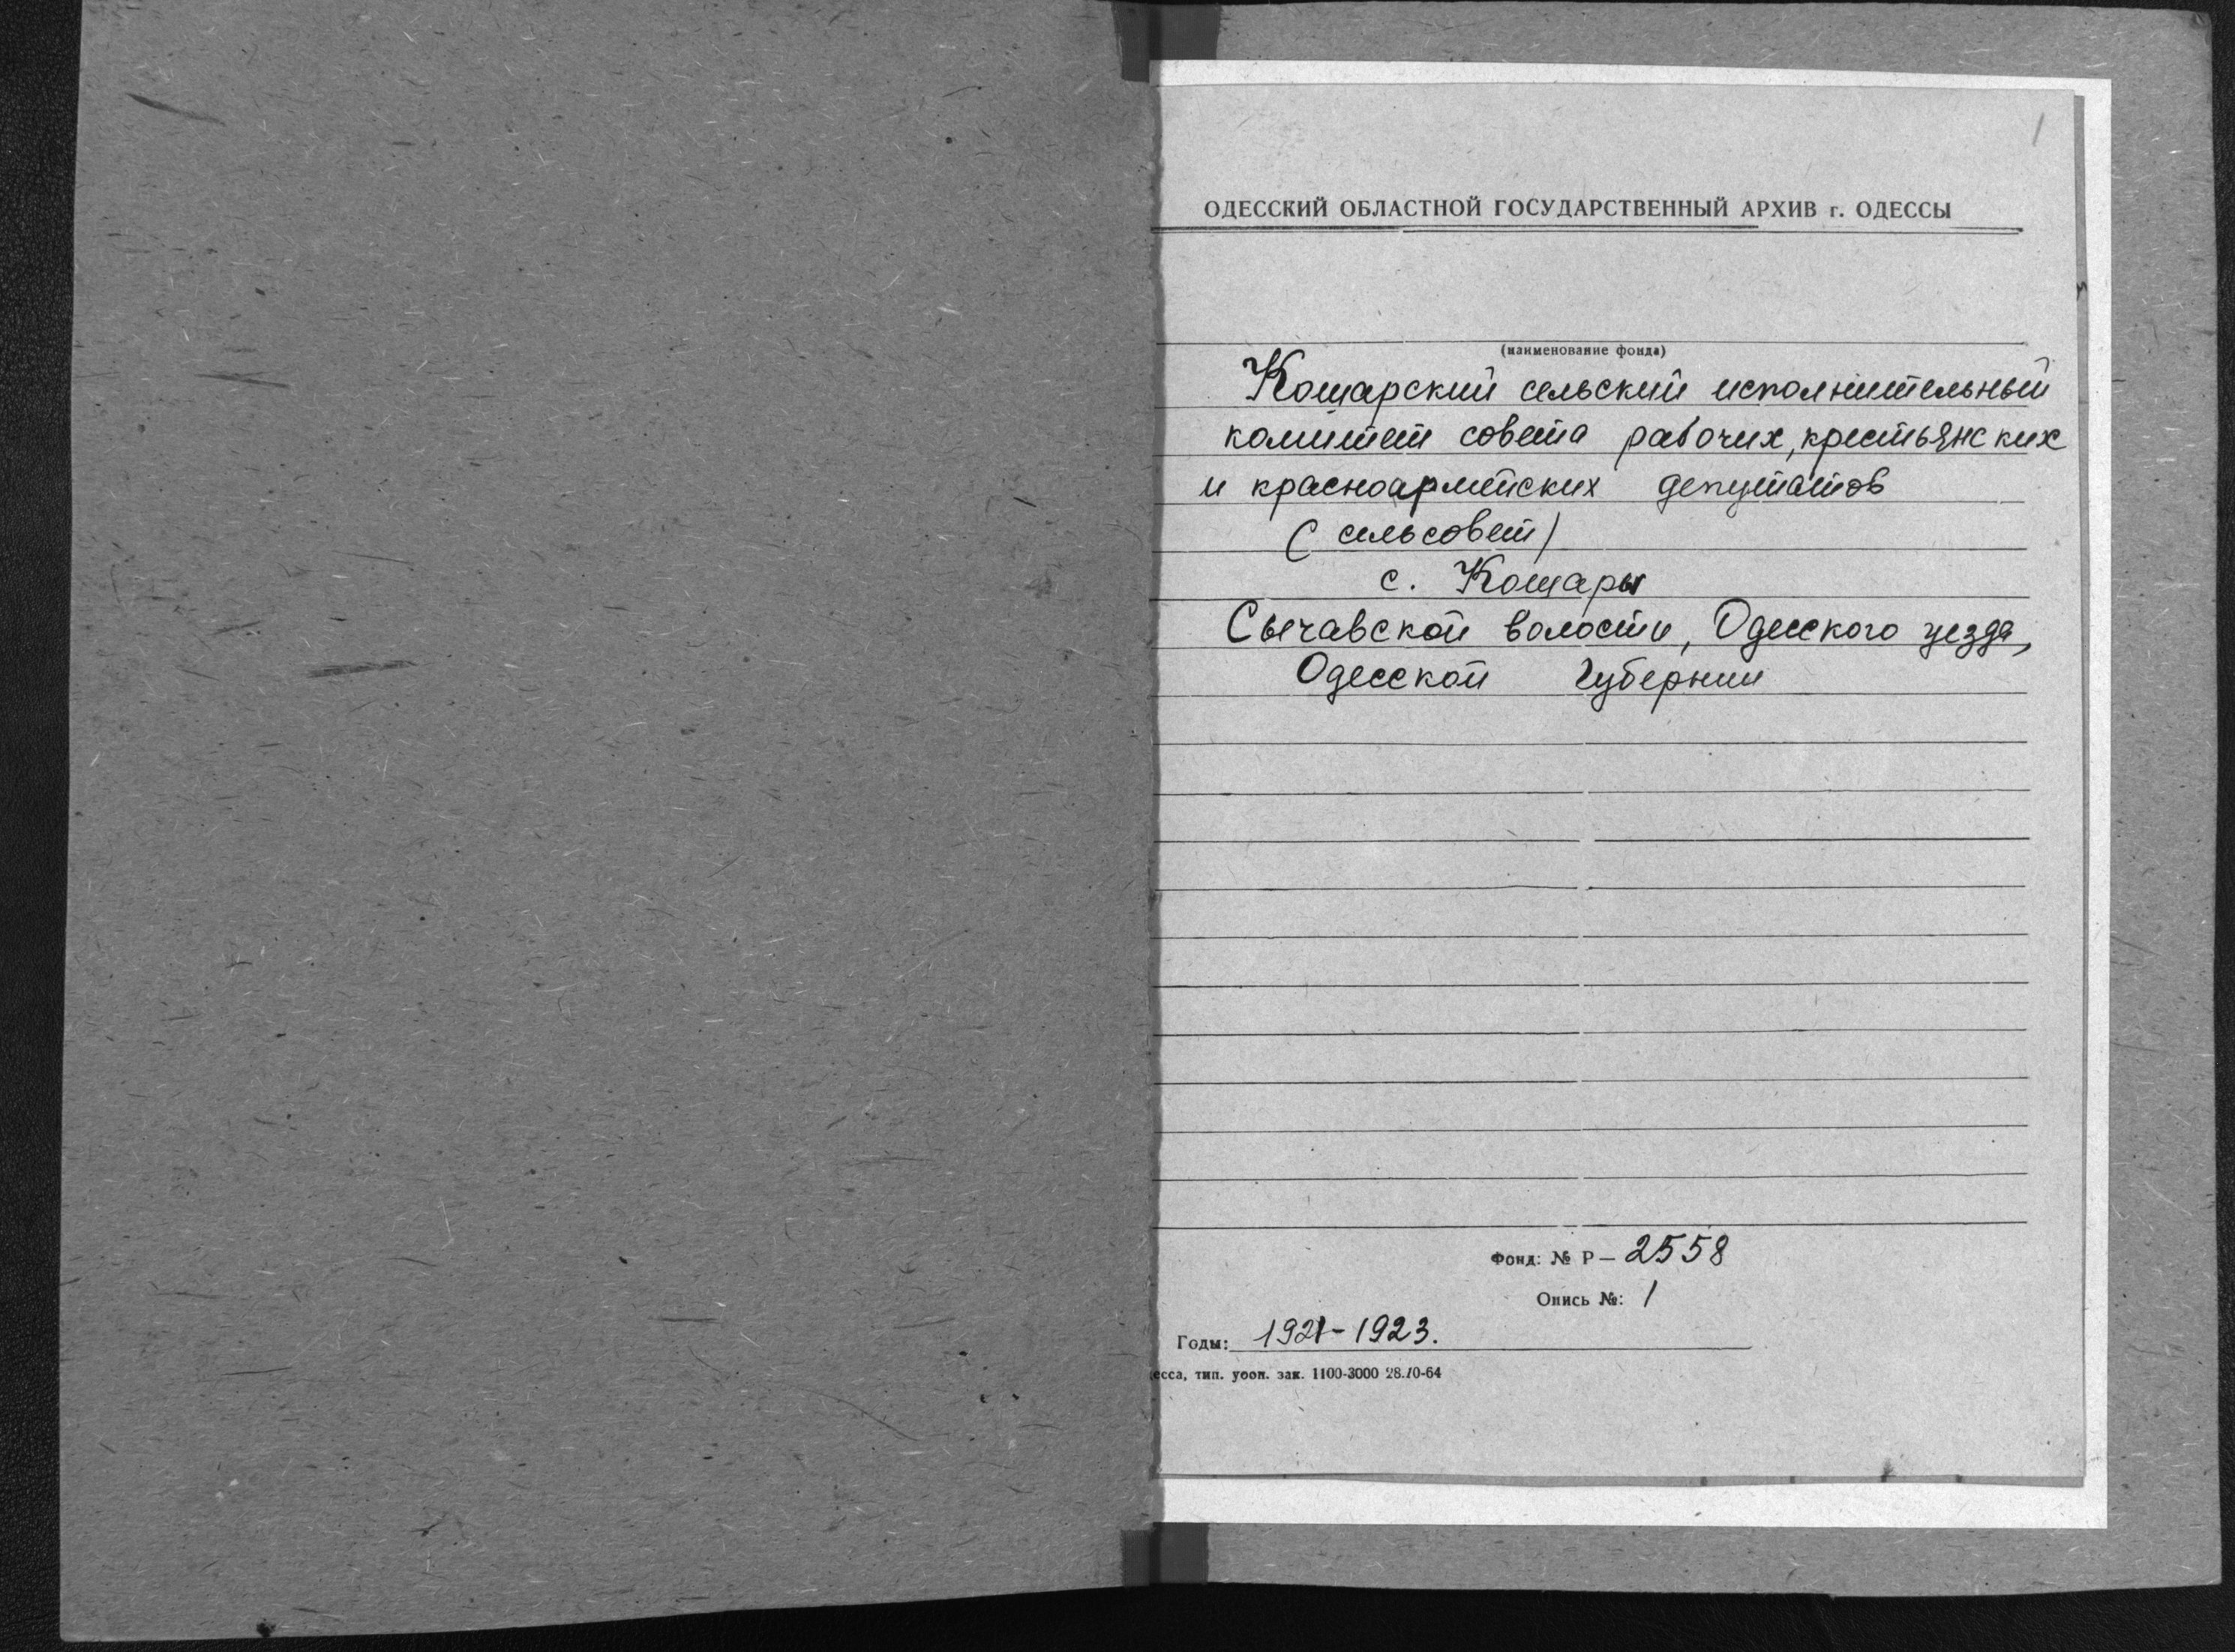 1
ОДЕССКИЙ ОБЛАСТНОЙ ГОСУДАРСТВЕННЫЙ АРХИВ г. ОДЕССЫ
(наименование фонда)
Кошарский сельский исполнительный
комитет совета рабочих, крестьянских
и красноармейских депутатов
(сельсовет)
с. Кошары
Сычавской волости, Одесского уезда,
Одесской губернии
Фонд: № Р— 2558
Опись №: 1
Годы: 1921-1923.
есса, тип. уооп. зак. 1100-3000 28.10-64